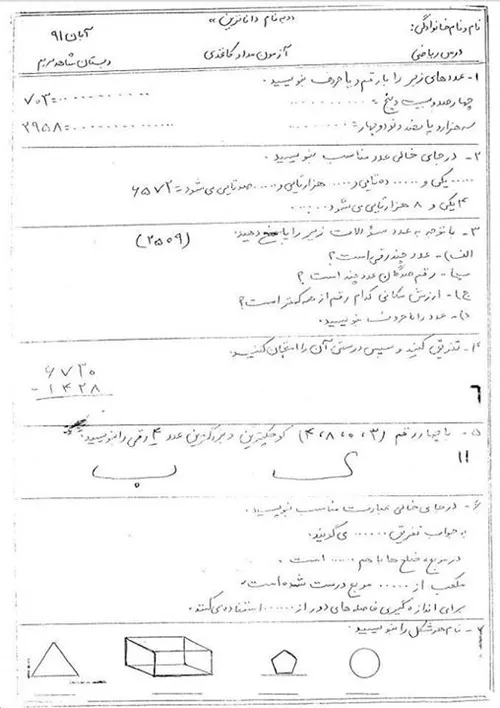 «به نام داناترین»
نام و نام خانوادگی:
آبان ۹۱
درس ریاضی
آزمون مداد کاغذی
دبستان شاهد مریم
۱- عددهای زیر را با رقم و یا حروف بنویسید.
چهارصد و بیست و پنج = ............
۷۰۳=............
سه هزار و پانصد و نود و چهار=............
۲۹۵۸=............
۲- در جای خالی عدد مناسب بنویسید.
..... یکی و ..... ده تایی و ..... هزارتایی و ..... صدتایی می شود = ۶۵۷۲
۴ یکی و ۸ هزارتایی می شود .....
۳- با توجه به عدد سؤالات زیر را پاسخ دهید: (۲۵۰۹)
الف)- عدد چند رقمی است؟
ب)- رقم صدگان عدد چند است؟
ج)- ارزش مکانی کدام رقم از همه کمتر است؟
د)- عدد را با حروف بنویسید.
۴- تفریق کنید و سپس درستی آن را امتحان کنید.
۶۷۳۰
- ۱۴۲۸
۶
۵- با چهار رقم (۳، ۰، ۸، ۴) کوچکترین و بزرگترین عدد ۴ رقمی را بنویسید.
ک
ب
۱۱
۶- در جای خالی عبارت مناسب بنویسید.
به جواب تفریق ...... می گویند.
در مربع، ضلع ها با هم ..... است.
مکعب از ...... مربع درست شده است.
برای اندازه گیری فاصله های دور از ...... استفاده می کنند.
۷- نام هر شکل را بنویسید.